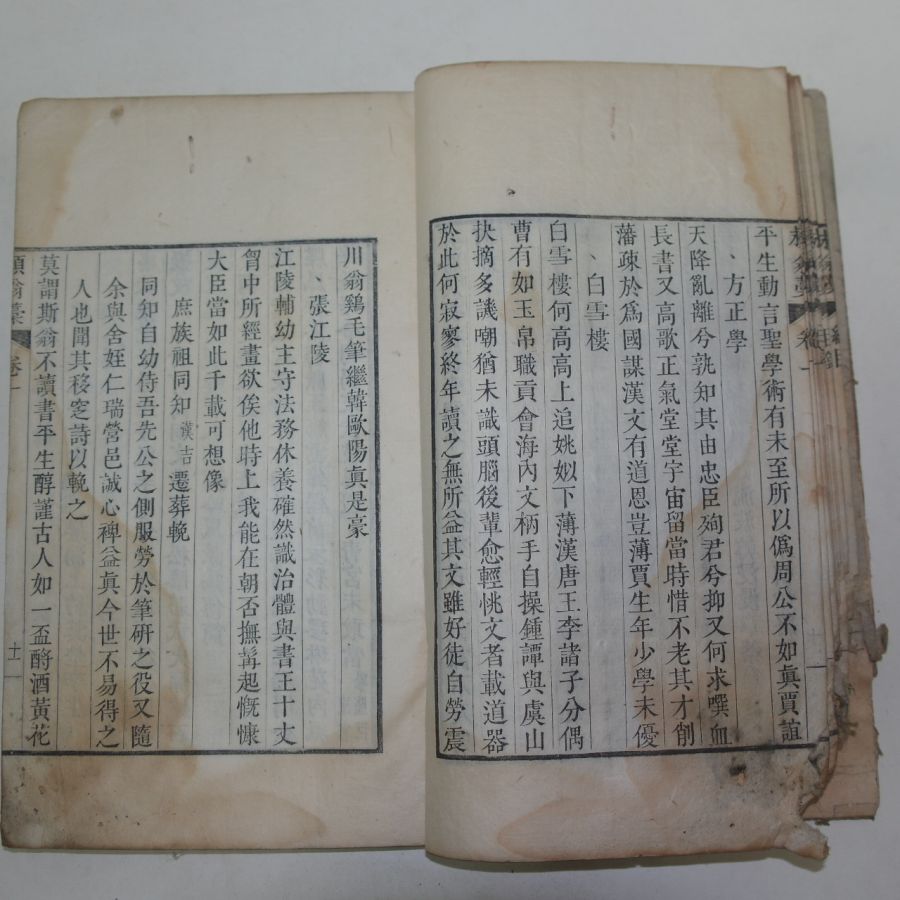 平生動言聖學術有未至所以僞周公不如眞賈誼
、方正學
天降亂離兮孰知其由忠臣殉君兮抑又何求噀血
長書又高歌正氣堂堂宇宙留當時惜不老其才削
藩疎於爲國謀漢文有道恩豈薄賈生年少學未優
、白雪樓
白雪樓何高高上追姚姒下薄漢唐王李諸子分偶
曹有如玉帛職貢會海內文柄手自操鍾譚與虞山
抉摘多譏嘲猶未識頭腦後輩愈輕恌文者載道器
於此何寂寥終年讀之無所益其文雖好徒自勞震
川翁鷄毛筆繼韓歐陽眞是豪
、張江陵
江陵輔幼主守法務休養確然識治體與書王十丈
胷中所經畫欲俟他時上我能在朝否撫㡓起慨慷
大臣當如此千載可想像
庶族祖同知漢吉遷葬輓
同知自幼侍吾先公之側服勞於筆硏之役又隨
余與舍姪仁瑞營邑誠心裨益眞今世不易得之
人也聞其移窆詩以輓之
莫謂斯翁不讀書平生醇謹古人如一盃酹酒黃花
翁藁 卷一 十一